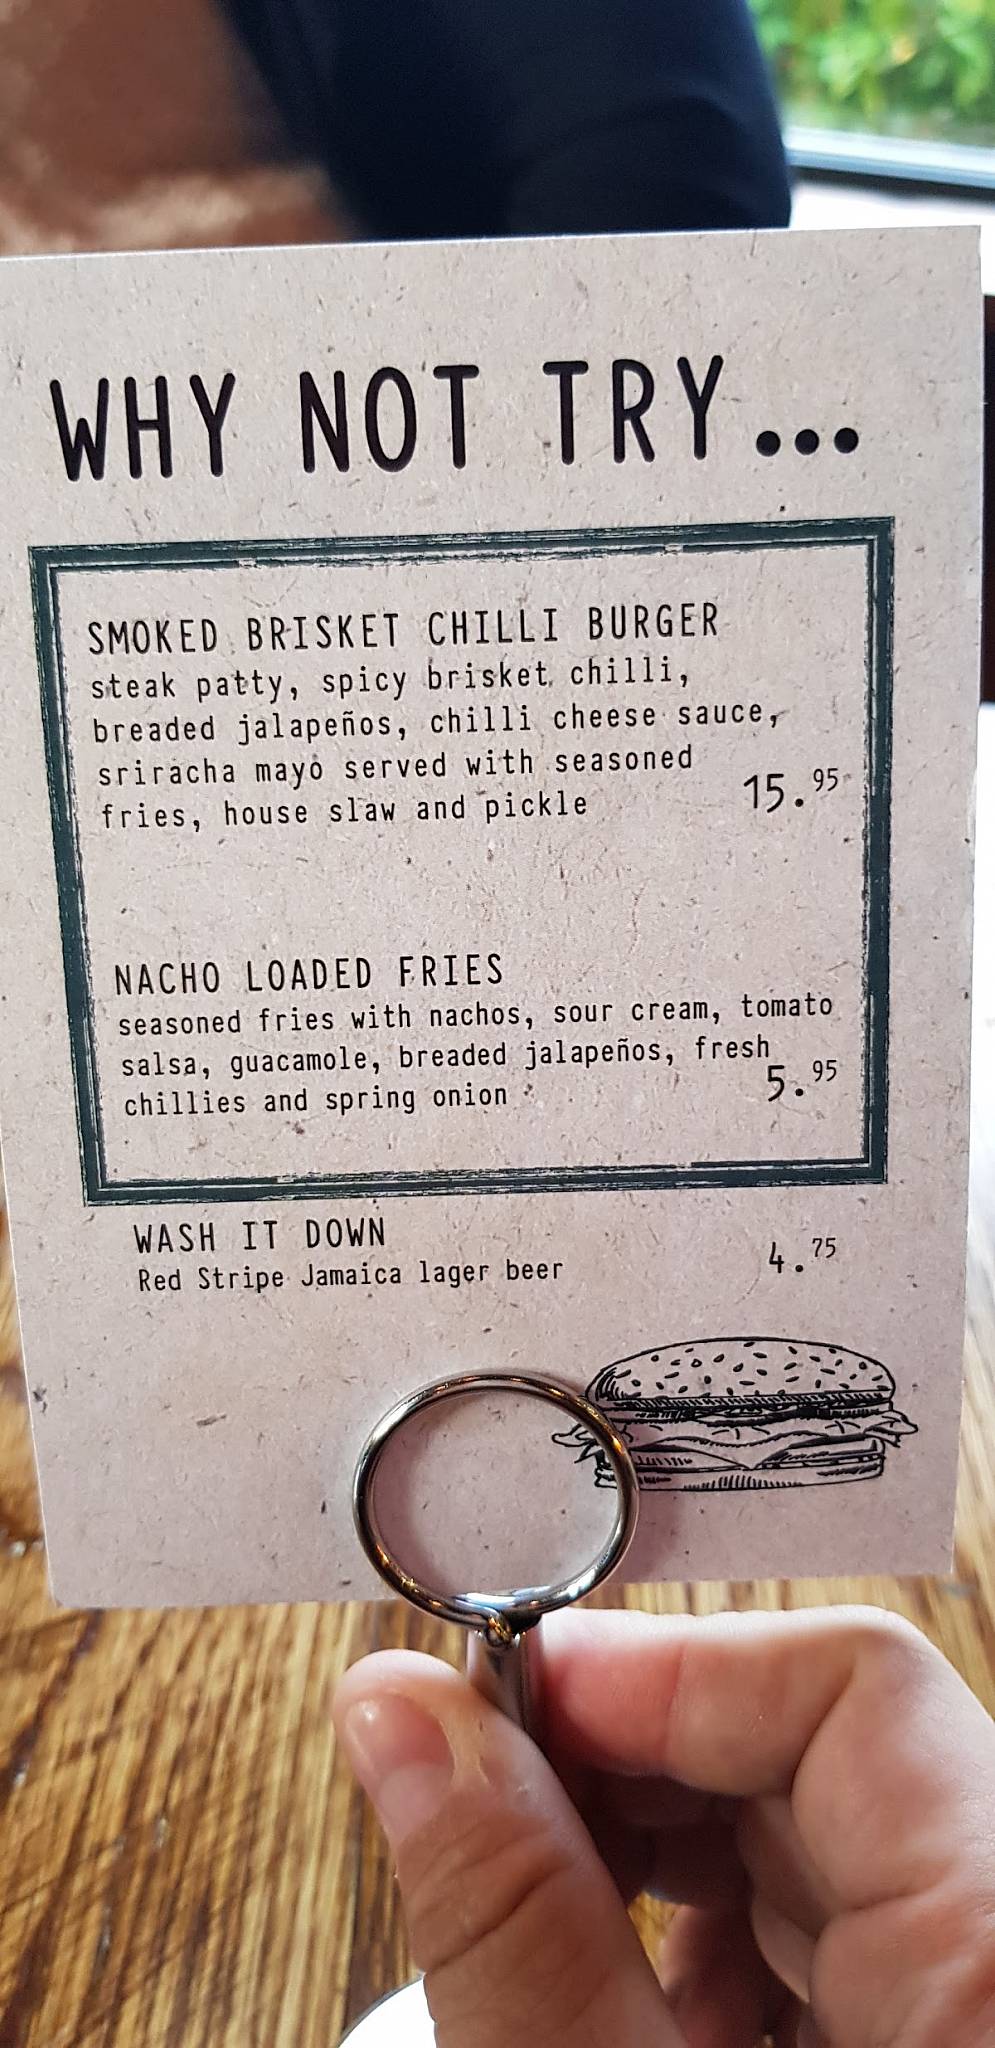 WHY NOT TRY...
SMOKED BRISKET CHILLI BURGER
steak patty, spicy brisket chilli,
breaded jalapeños, chilli cheese sauce,
sriracha mayo served with seasoned
fries, house slaw and pickle 15.95
NACHO LOADED FRIES
seasoned fries with nachos, sour cream, tomato
salsa, guacamole, breaded jalapeños, fresh
chillies and spring onion 5.95
WASH IT DOWN
Red Stripe Jamaica lager beer 4.75